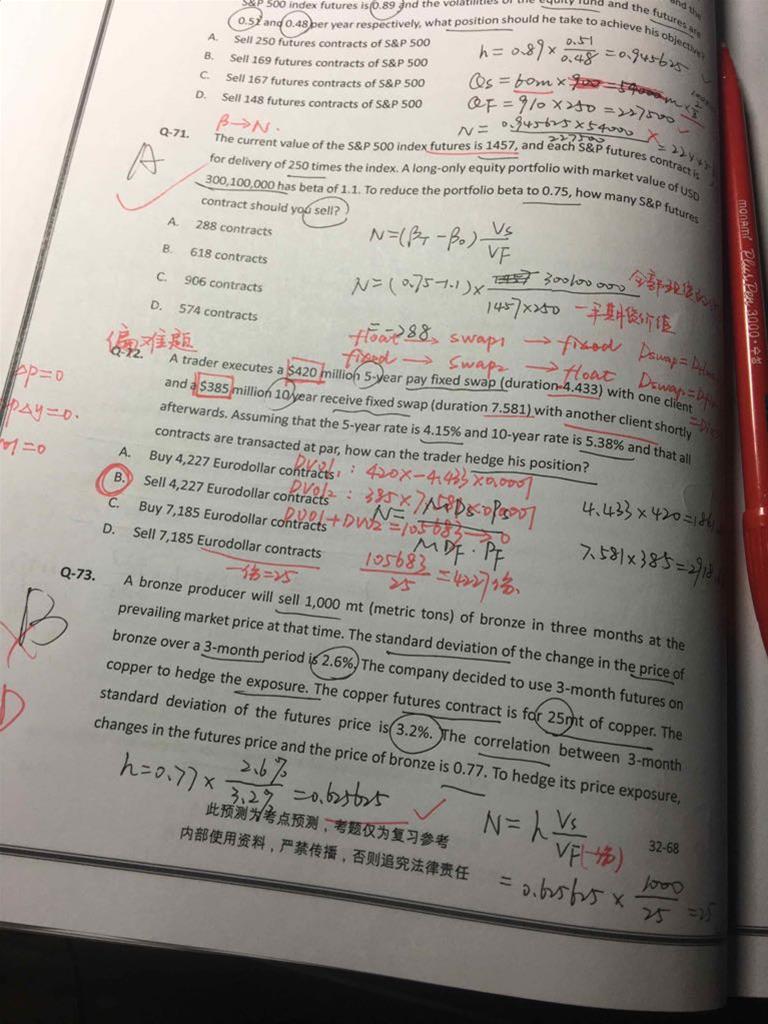 S&P 500 index futures is 0.89 and the volatilities of the equity fund and the futures are
0.51 and 0.48 per year respectively, what position should he take to achieve his objective?
A. Sell 250 futures contracts of S&P 500
h = 0.89 × 0.51/0.48 = 0.945625
B. Sell 169 futures contracts of S&P 500
C. Sell 167 futures contracts of S&P 500
Qs = 60m ×
D. Sell 148 futures contracts of S&P 500
QF = 910 × 250 = 227500
N = 0.945625 × 54000 / 227500
β→N.
Q-71. The current value of the S&P 500 index futures is 1457, and each S&P futures contract is
A
for delivery of 250 times the index. A long-only equity portfolio with market value of USD
300,100,000 has beta of 1.1. To reduce the portfolio beta to 0.75, how many S&P futures
contract should you sell?
A. 288 contracts
N = (βT - β0) Vs/VF
B. 618 contracts
C. 906 contracts
N = (0.75-1.1) × 300100000 / 1457×250
一手期货价值
D. 574 contracts
= -288
float → swap1 → fixed
偏难题
fixed → swap2 → float
Q-72. A trader executes a $420 million 5-year pay fixed swap (duration 4.433) with one client
ΔP=0
and a $385 million 10-year receive fixed swap (duration 7.581) with another client shortly
afterwards. Assuming that the 5-year rate is 4.15% and 10-year rate is 5.38% and that all
contracts are transacted at par, how can the trader hedge his position?
A. Buy 4,227 Eurodollar contracts
DV01₁ : 420×-4.433×0.0001
B. Sell 4,227 Eurodollar contracts
DV012 : 385×7.581×0.0001
4.433×420=
C. Buy 7,185 Eurodollar contracts
DV01+DV02=105683→0
N = MDs·Ps / MDF·PF
D. Sell 7,185 Eurodollar contracts
7.581×385=
=25
105683/25 = 4227份.
Q-73. A bronze producer will sell 1,000 mt (metric tons) of bronze in three months at the
B
prevailing market price at that time. The standard deviation of the change in the price of
bronze over a 3-month period is 2.6%. The company decided to use 3-month futures on
D
copper to hedge the exposure. The copper futures contract is for 25mt of copper. The
standard deviation of the futures price is 3.2%. The correlation between 3-month
changes in the futures price and the price of bronze is 0.77. To hedge its price exposure,
h = 0.77 × 2.6%/3.2% = 0.625625
此预测为考点预测，考题仅为复习参考
内部使用资料，严禁传播，否则追究法律责任
N = h Vs/VF
32-68
= 0.625625 × 1000/25 = 25
monami Plus Pen 3000